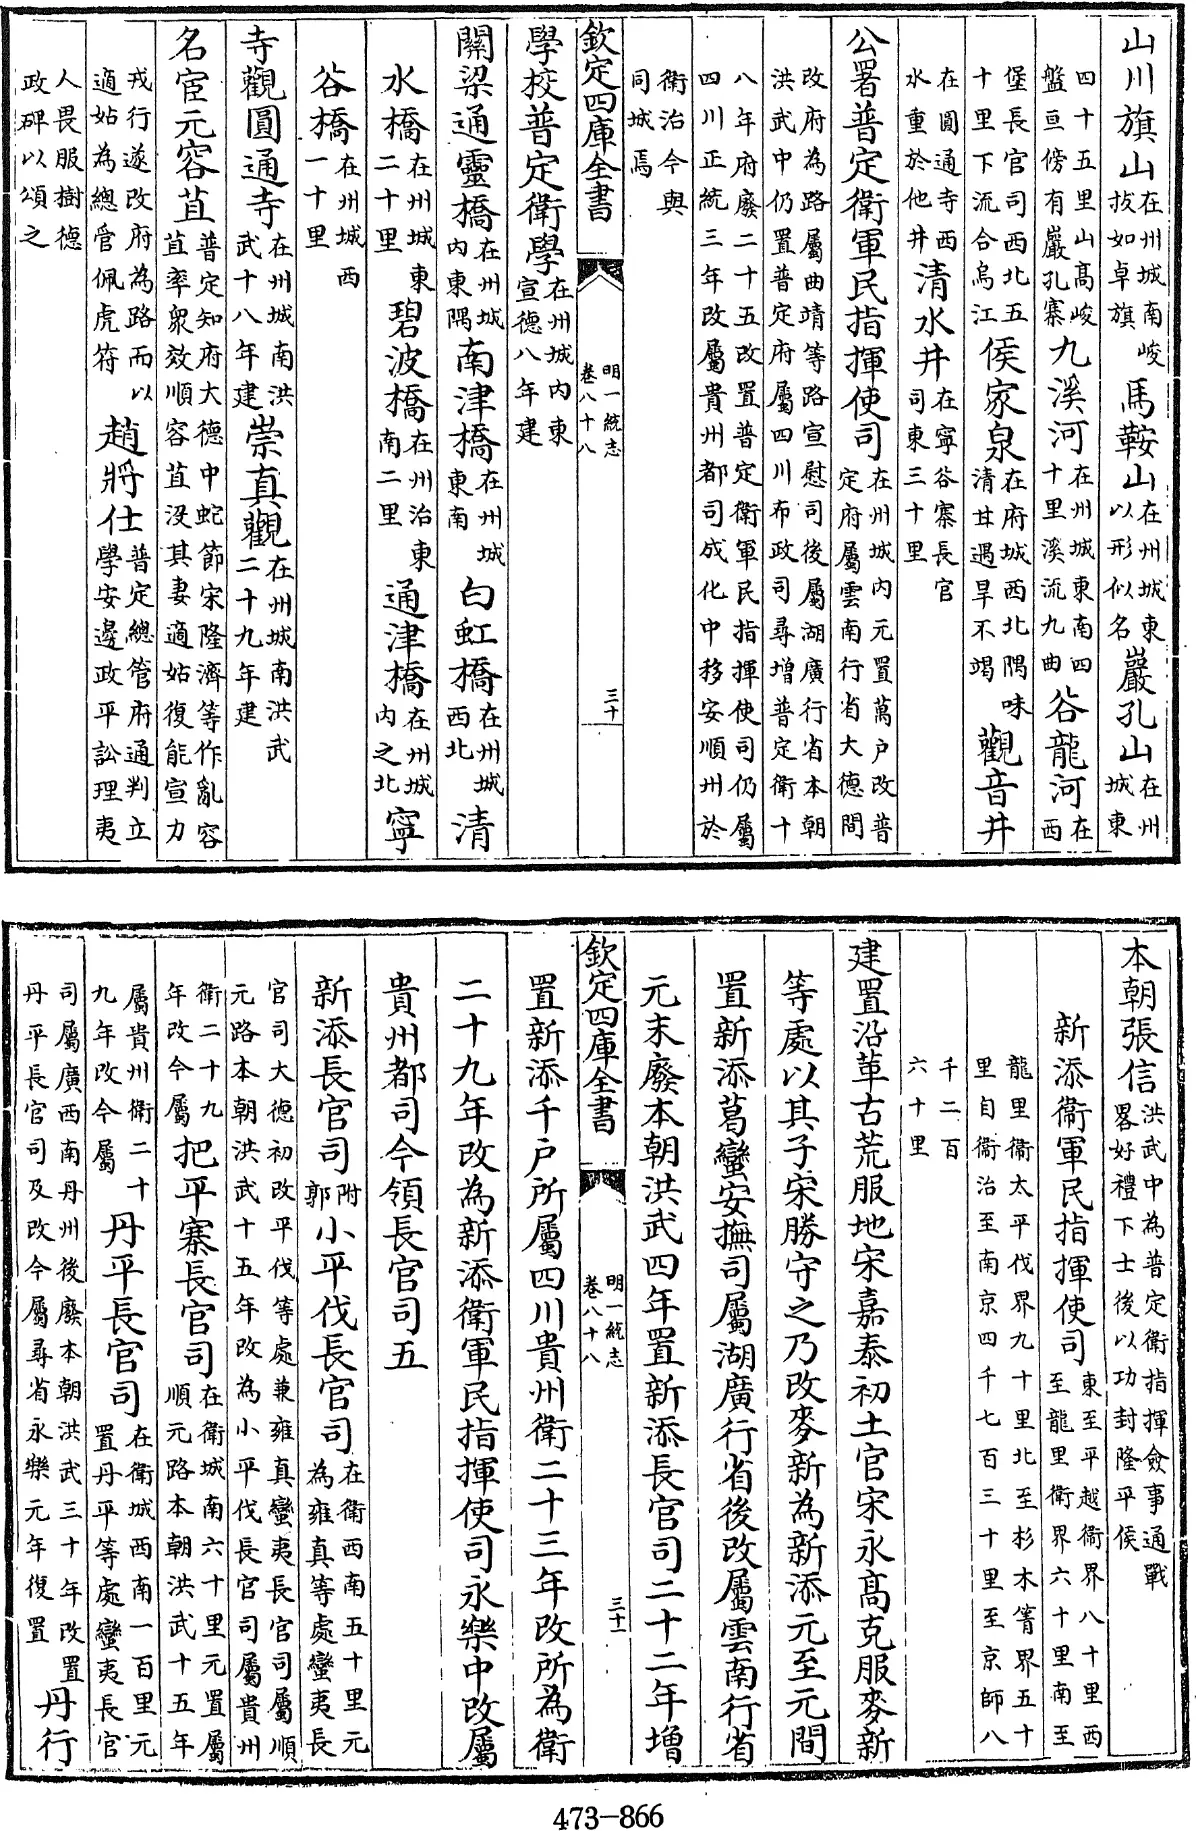 山川旗山在州城南峻拔如卓旗馬鞍山在州城東以形似名巖孔山在州城東
四十五里山高峻盤亘傍有巖孔寨九溪河在州城東南四十里溪流九曲谷龍河在西
堡長官司西北五十里下流合烏江侯家泉在府城西北隅味清甘遇旱不竭觀音井
在圓通寺西水重於他井清水井在寧谷寨長官司東三十里
公署普定衛軍民指揮使司在州城内元置萬户改普定府屬雲南行省大德間
改府為路屬曲靖等路宣慰司後屬湖廣行省本朝洪武中仍置普定府屬四川布政司尋增普定衛十
八年府廢二十五改置普定衛軍民指揮使司仍屬四川正統三年改屬貴州都司成化中移安順州於
衛治今與同城焉
欽定四庫全書 明一統志 卷八十八 三十
學校普定衛學在州城内東宣德八年建
關梁通靈橋在州城内東隅南津橋在州城東南白虹橋在州城西北清
水橋在州城東二十里碧波橋在州治東南二里通津橋在州城内之北寧
谷橋在州城西一十里
寺觀圓通寺在州城南洪武十八年建崇真觀在州城南洪武二十九年建
名宦元容苴普定知府大德中蛇節宋隆濟等作亂容苴率衆效順容苴沒其妻適姑復能宣力
戎行遂改府為路而以適姑為總管佩虎符趙將仕普定總管府通判立學安邊政平訟理夷
人畏服樹德政碑以頌之
本朝張信洪武中為普定衛指揮僉事通戰畧好禮下士後以功封隆平侯
新添衛軍民指揮使司東至平越衛界八十里西至龍里衛界六十里南至
龍里衛太平伐界九十里北至杉木箐界五十里自衛治至南京四千七百三十里至京師八
千二百六十里
建置沿革古荒服地宋嘉泰初土官宋永高克服麥新
等處以其子宋勝守之乃改麥新為新添元至元間
置新添葛蠻安撫司屬湖廣行省後改屬雲南行省
元末廢本朝洪武四年置新添長官司二十二年增
欽定四庫全書 明一統志 卷八十八 三十一
置新添千戶所屬四川貴州衛二十三年改所為衛
二十九年改為新添衛軍民指揮使司永樂中改屬
貴州都司今領長官司五
新添長官司附郭小平伐長官司在衛西南五十里元為雍真等處蠻夷長
官司大德初改平伐等處兼雍真蠻夷長官司屬順元路本朝洪武十五年改為小平伐長官司屬貴州
衛二十九年改今屬把平寨長官司在衛城南六十里元置屬順元路本朝洪武十五年
屬貴州衛二十九年改今屬丹平長官司在衛城西南一百里元置丹平等處蠻夷長官
司屬廣西南丹州後廢本朝洪武三十年改置丹平長官司及改今屬尋省永樂元年復置丹行
473-866